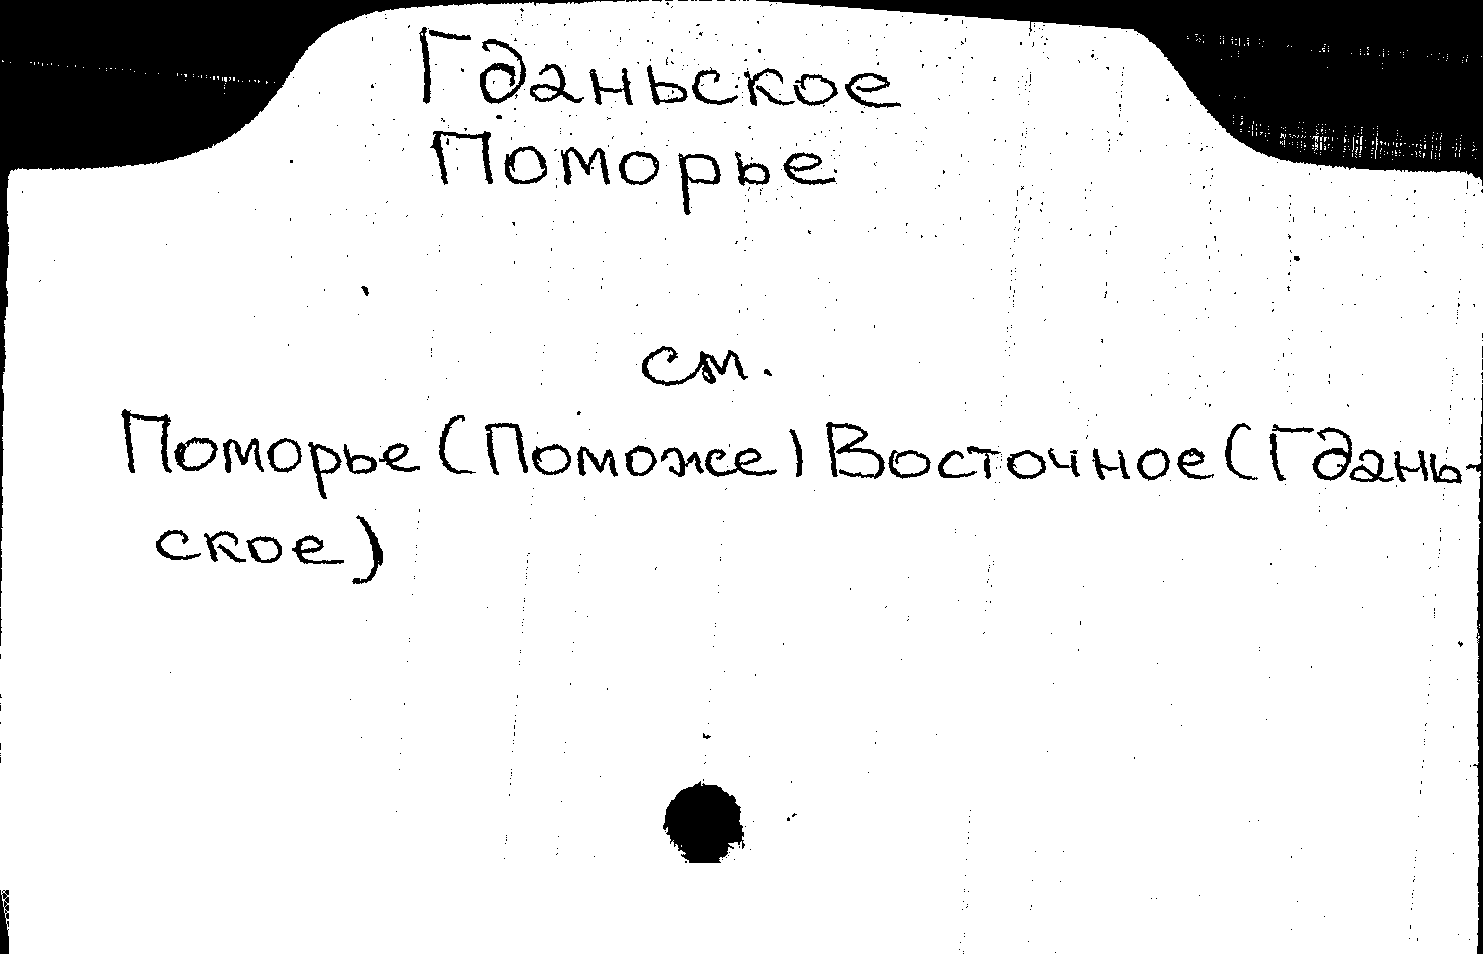 Гданьское
Поморье
см.
Поморье (Поможе) Восточное (Гдань-
ское)